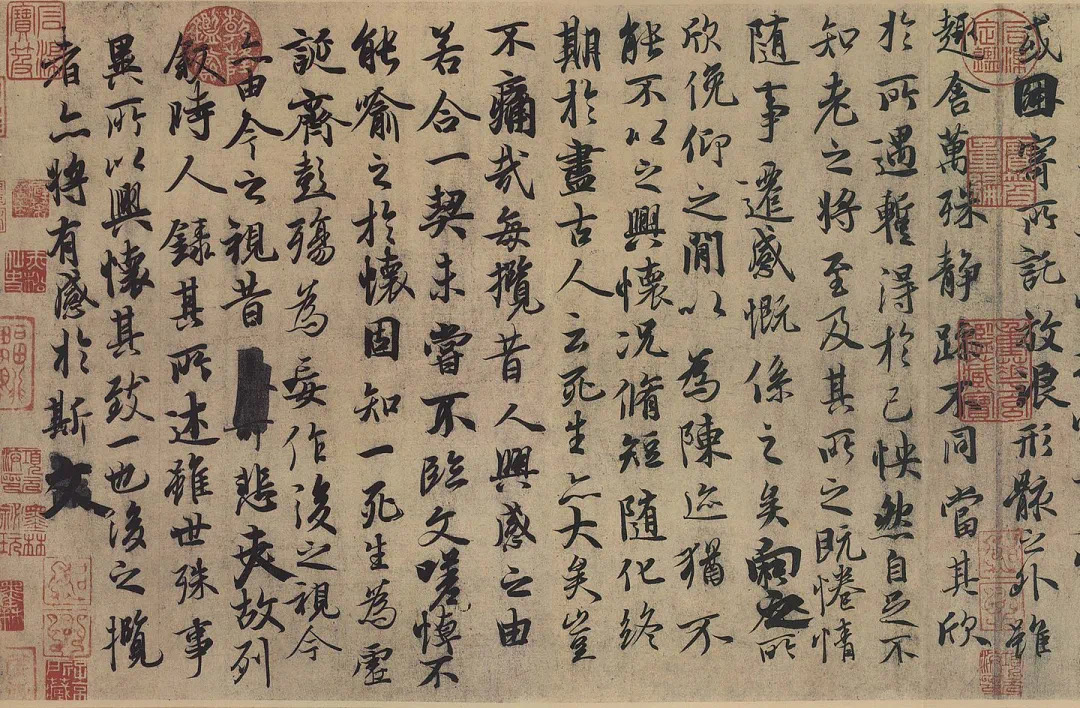 或因寄所託放浪形骸之外雖
趣舍萬殊静躁不同當其欣
於所遇蹔得於己怏然自足不
知老之將至及其所之既惓情
隨事遷感慨係之矣向之所
欣俛仰之閒以為陳迹猶不
能不以之興懷況脩短隨化終
期於盡古人云死生亦大矣豈
不痛哉每攬昔人興感之由
若合一契未嘗不臨文嗟悼不
能喻之於懷固知一死生為虛
誕齊彭殤為妄作後之視今
亦由今之視昔悲夫故列
叙時人錄其所述雖世殊事
異所以興懷其致一也後之攬
者亦將有感於斯文